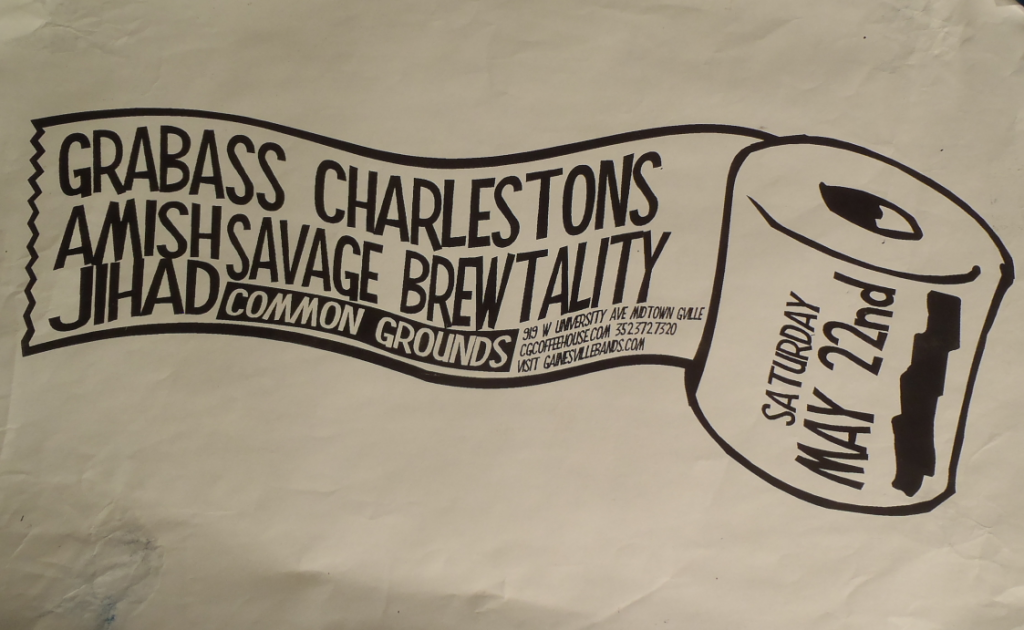 GRABASS CHARLESTONS
AMISH SAVAGE BREWTALITY
JIHAD
COMMON GROUNDS
919 W UNIVERSITY AVE MIDTOWN GVILLE
CGCOFFEEHOUSE.COM 352.372.7320
VISIT GAINESVILLEBANDS.COM
SATURDAY
MAY 22nd